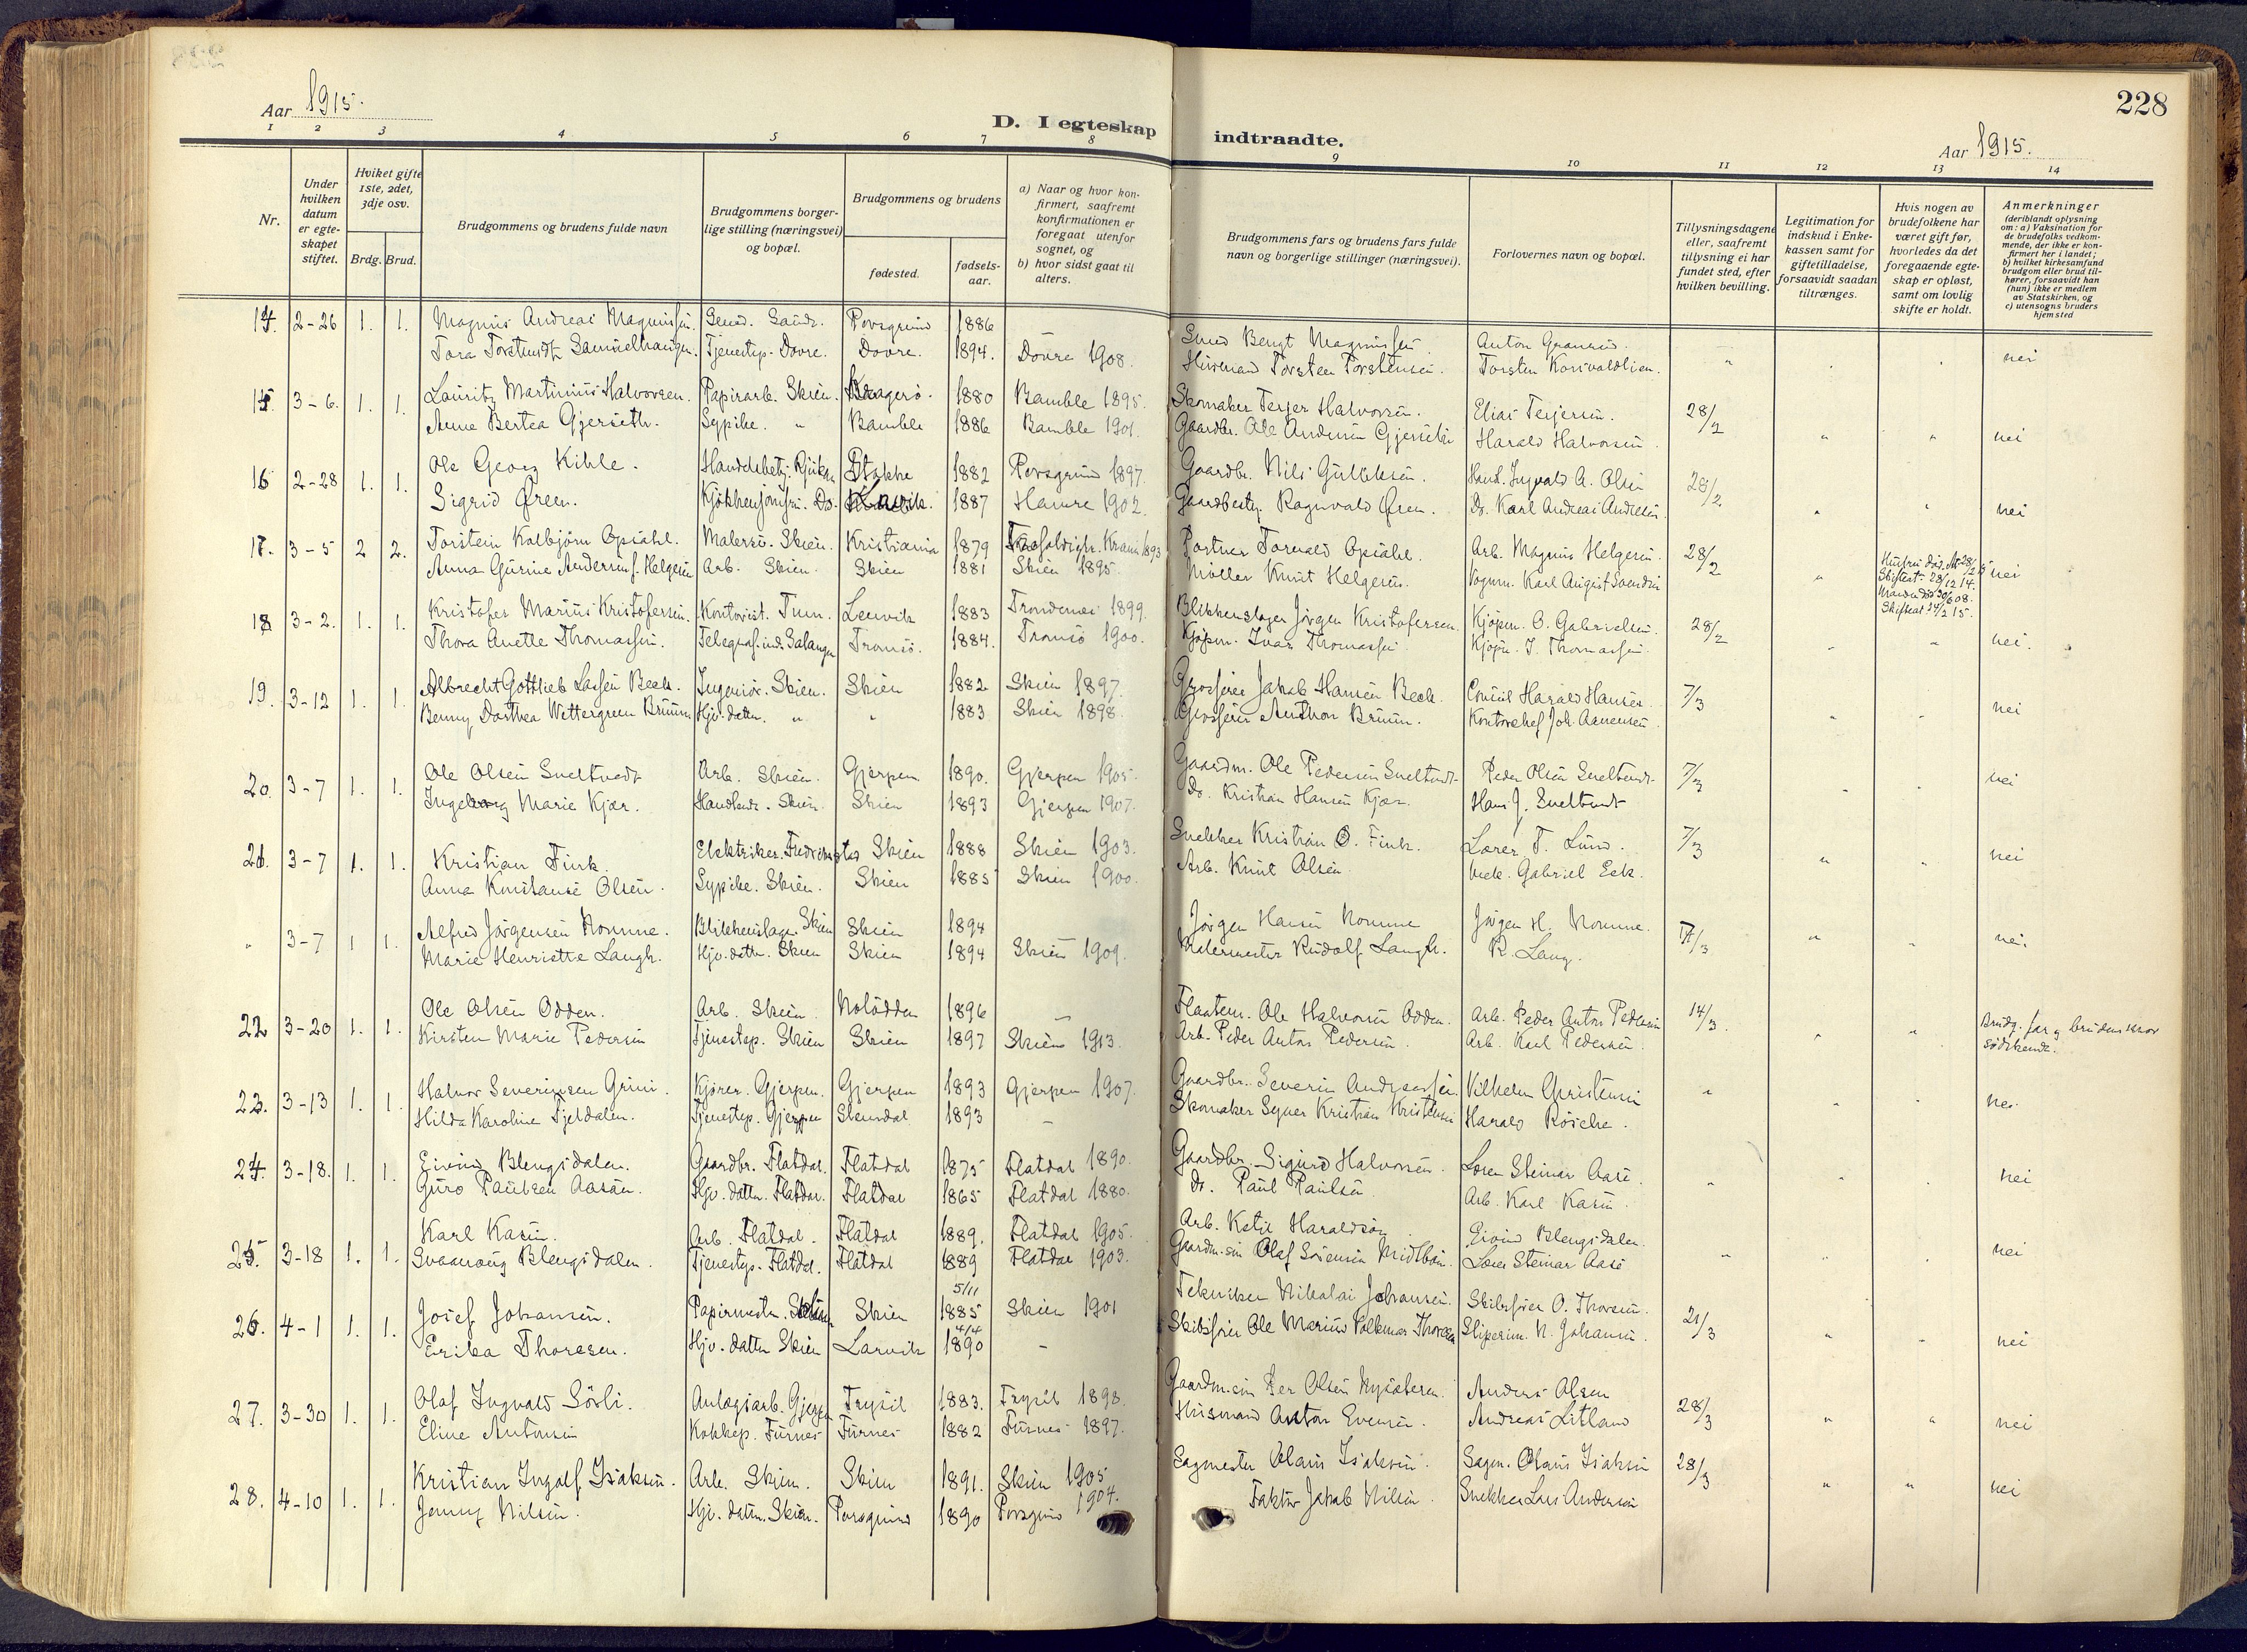 228
Aar 1915.
D. I egteskap indtraadte.
Aar 1915.
1 2 3 4 5 6 7 8 9 10 11 12 13 14
Nr.
Under hvilken datum er egteskapet stiftet.
Hviket gifte 1ste, 2det, 3dje osv.
Brdg. Brud.
Brudgommens og brudens fulde navn
Brudgommens borgerlige stilling (næringsvei) og bopæl.
Brudgommens og brudens
fødested.
fødselsaar.
a) Naar og hvor konfirmert, saafremt konfirmationen er foregaat utenfor sognet, og
b) hvor sidst gaat til alters.
Brudgommens fars og brudens fars fulde navn og borgerlige stillinger (næringsvei).
Forlovernes navn og bopæl.
Tillysningsdagene eller, saafremt tillysning ei har fundet sted, efter hvilken bevilling.
Legitimation for indskud i Enkekassen samt for giftetilladelse, forsaavidt saadan tiltrænges.
Hvis nogen av brudefolkene har været gift før, hvorledes da det foregaaende egteskap er opløst, samt om lovlig skifte er holdt.
Anmerkninger (deriblandt oplysning om: a) Vaksination for de brudefolks vedkommende, der ikke er konfirmert her i landet; b) hvilket kirkesamfund brudgom eller brud tilhører, forsaavidt han (hun) ikke er medlem av Statskirken, og c) utensogns bruders hjemsted
14. 2-26 1. 1. Magnus Andreas Magnussen. Porsgrund 1886 – Smed Bengt Magnussen. Anton
Tora Torstensdt. Tjenestep. Dovre. Dovre. 1894. Dovre 1908. Husmand Torsten Torstensen. Torsten " . . nei
15. 3-6. 1. 1. Lauritz Martinius Halvorsen. Papirarb. Skien. Kragerø. 1880 Bamble 1895. Skomaker Terjer Halvorsen. Elias Terjersen. 28/2
Anne Bertea Gjerseth. Sypike. " Bamble 1886 Bamble 1901. Gaardbr. Ole Andersen Gjerseth Harald Halvorsen. " " nei
16 2-28 1. 1. Ole Georg Kihle. Handelsbetj. Rjukan 1882 Porsgrund 1897. Gaardbr. Nils Gulliksen. Hand. Ingvald A. Olsen 28/2
Sigrid Øren. Do. 1887 Hamre 1902. Gaardbest. Ragnvald Øren. Do. Karl Andreas Andersen " " nei
17. 3-5 2 2. Torstein Kolbjørn Opsahl. Malersv. Skien. Kristiania 1879 Portner Torvald Opsahl. Arb. Magnus Helgesen. 28/2
Anna Gurine Andersen f. Helgesen Arb. Skien. Skien 1881 Skien 1895. Møller Knut Helgesen. Vognm. Karl August " nei
18 3-2. 1. 1. Kristofer Marius Kristofersen. Kontorist. Lenvik 1883 Trondenes 1899. Blikkenslager Jørgen Kristofersen. Kjøpm. O. Gabrielsen. 28/2
Thora Anette Thomassen. Salangen Tromsø. 1884. Tromsø 1900. Kjøpm. Ivar Thomassen Kjøpm. I. Thomassen. " " nei.
19. 3-12 1. 1. Albrecht Gottlieb Lassen Beck. Ingeniør. Skien. Skien 1882 Skien 1897. Grosserer Jakob Hansen Beck. Consul Harald Hansen. 7/3
Benny Dorthea Wettergreen Bruun Hjv. datter. " " 1883 Skien 1898. Grosserer Anthon Bruun. Kontorchef Joh. Aanensen. " " nei
20. 3-7 1. 1. Ole Olsen Sneltvedt Arb. Skien. Gjerpen 1890. Gjerpen 1905. Gaardm. Ole Pedersen Sneltvedt Peder Olsen Sneltvedt 7/3 nei
Ingeborg Marie Kjær. Skien. Skien 1893 Gjerpen 1907. Do. Kristian Hansen Kjær. Hans J. Sneltvedt
21. 3-7 1. 1. Kristian Fink. Elektriker. Fredrikstad Skien 1888 Skien 1903. Snekker Kristian O. Fink. Lærer T. Lund. 7/3
Anna Konstanse Olsen. Sypike. Skien. Skien 1885 Skien 1900. Arb. Knut Olsen. Gabriel Eek. " " nei
" 3-7 1 1. Alfred Jørgensen Nomme. Blikkenslager Skien Skien 1894 Jørgen Hansen Nomme Jørgen H. Nomme. /3
Marie Henriette Langh. Hjv. datter. Skien Skien 1894 Skien 1909. Malermester Rudolf Langh. R. Lang. " " nei.
22 3-20 1. 1. Ole Olsen Odden. Arb. Skien Notodden 1896 – Fløterm. Ole Halvorsen Odden. Arb. Peder Anton Pedersen 14/3.
Kirsten Marie Pedersen Tjenestep. Skien Skien 1897 Skien 1913. Arb. Peder Anton Pedersen. Arb. Karl Pedersen. Brudg. far og brudens mor sødskende.
23. 3-13 1. 1. Halvor Severinsen Grini. Kjører. Gjerpen. Gjerpen 1893 Gjerpen 1907. Gaardbr. Severin Andreassen. Vilhelm Christensen "
Hilda Karoline Fjeldalen. Tjenestep. Gjerpen Slemdal 1893 – Skomaker Syver Kristian Kristensen Harald " " nei.
24. 3-18. 1. 1. Eivind Blengsdalen. Gaardbr. Flatdal. Flatdal 1875 Flatdal 1890. Gaardbr. Sigurd Halvorsen. Lærer Steinar Aase. nei
Guro Paulsen Aasan. Hjv. datter. Flatdal. Flatdal 1865 Flatdal 1880. Do. Paul Paulsen. Arb. Karl Kasin.
25. 3-18 1. 1. Karl Kasin. Arb. Flatdal. Flatdal 1889. Flatdal 1905. Arb. Ketil Haraldson. Eivind Blengsdalen.
Svaanaug Blengsdalen. Tjenestep. Flatdal. Flatdal 1889 Flatdal 1903. Olaf Lærer Steinar Aase nei
26. 4-1 1. 1. Josef Johansen. Skien 5/11 1885 Skien 1901 Tekniker Nikolai Johansen. Skibsfører O. Thoresen. 21/3
Erika Thoresen. Hjv. datter Skien Larvik 4/4 1890 – Skibsfører Ole Marius Volkmar Thoresen N. Johansen. " " nei
27. 3-30 1. 1. Olaf Ingvald Sörli. Anlægsarb. Gjerpen Trysil 1883. Trysil 1898. Per Olsen Anders Olsen 28/3
Eline Antonsen Kokkep. Furnes Furnes 1882 Furnes 1897. Husmand Anton Evensen. Andreas Litland " " nei
28. 4-10 1. 1. Kristian Ingolf Isaksen. Arb. Skien. Skien 1891. Skien 1905 Sagmester Olaus Isaksen. Sagm. Olaus Isaksen 28/3
Jenny Nilsen. Hjv. datter. Skien. Porsgrund 1890 Porsgrund 1904. Faktor Jakob Nilsen. Snekker Lars Andersen " " nei